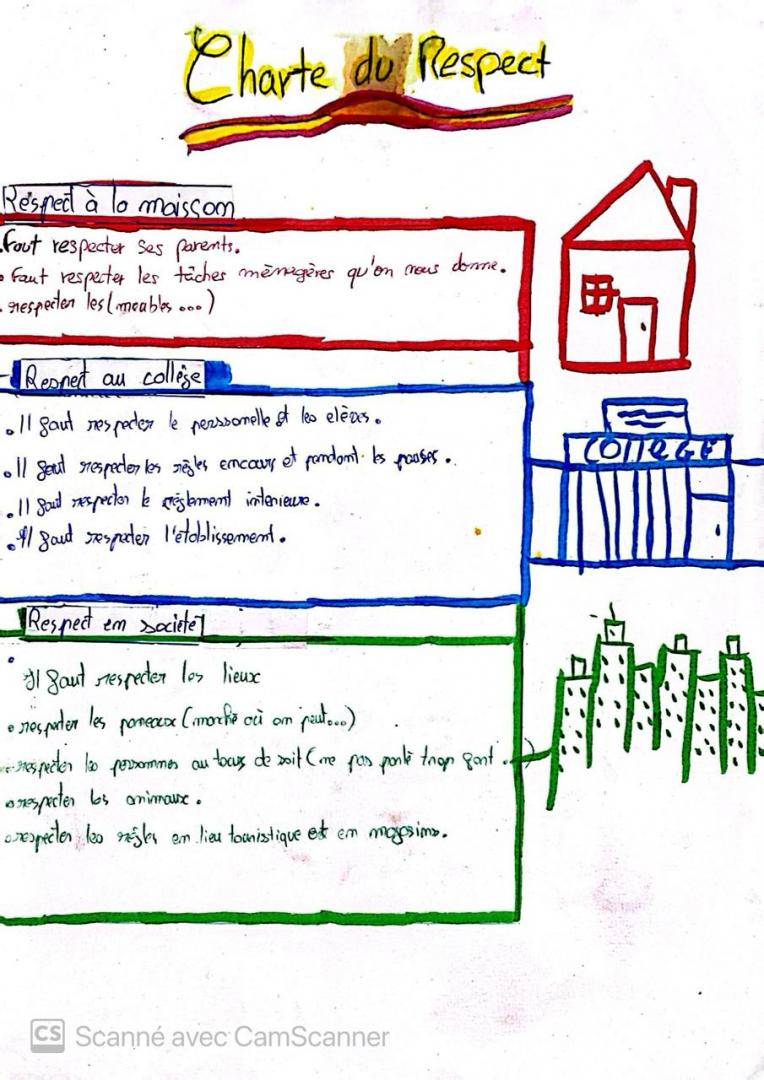 Charte du Respect
Respect à la maisson
.faut respecter ses parents.
. faut respecter les tâches mènagères qu'on nous donne.
. respecter les (meubles ...)
- Respect au collège
. Il faut respecter le perssonelle et les elèves.
. Il faut respecter les règles encours et pendant les pauses.
. Il faut respecter le réglement interieure.
. Il faut respecter l'établissement.
Respect en societé
Il faut respecter les lieux
. respecter les paneaux (marché où on peut...)
. respecter les personnes autours de soit (ne pas parlé trop fort.)
. respecter les animaux.
. respecter les règles en lieu touristique et en magasins.
COllEGE
CS Scanné avec CamScanner